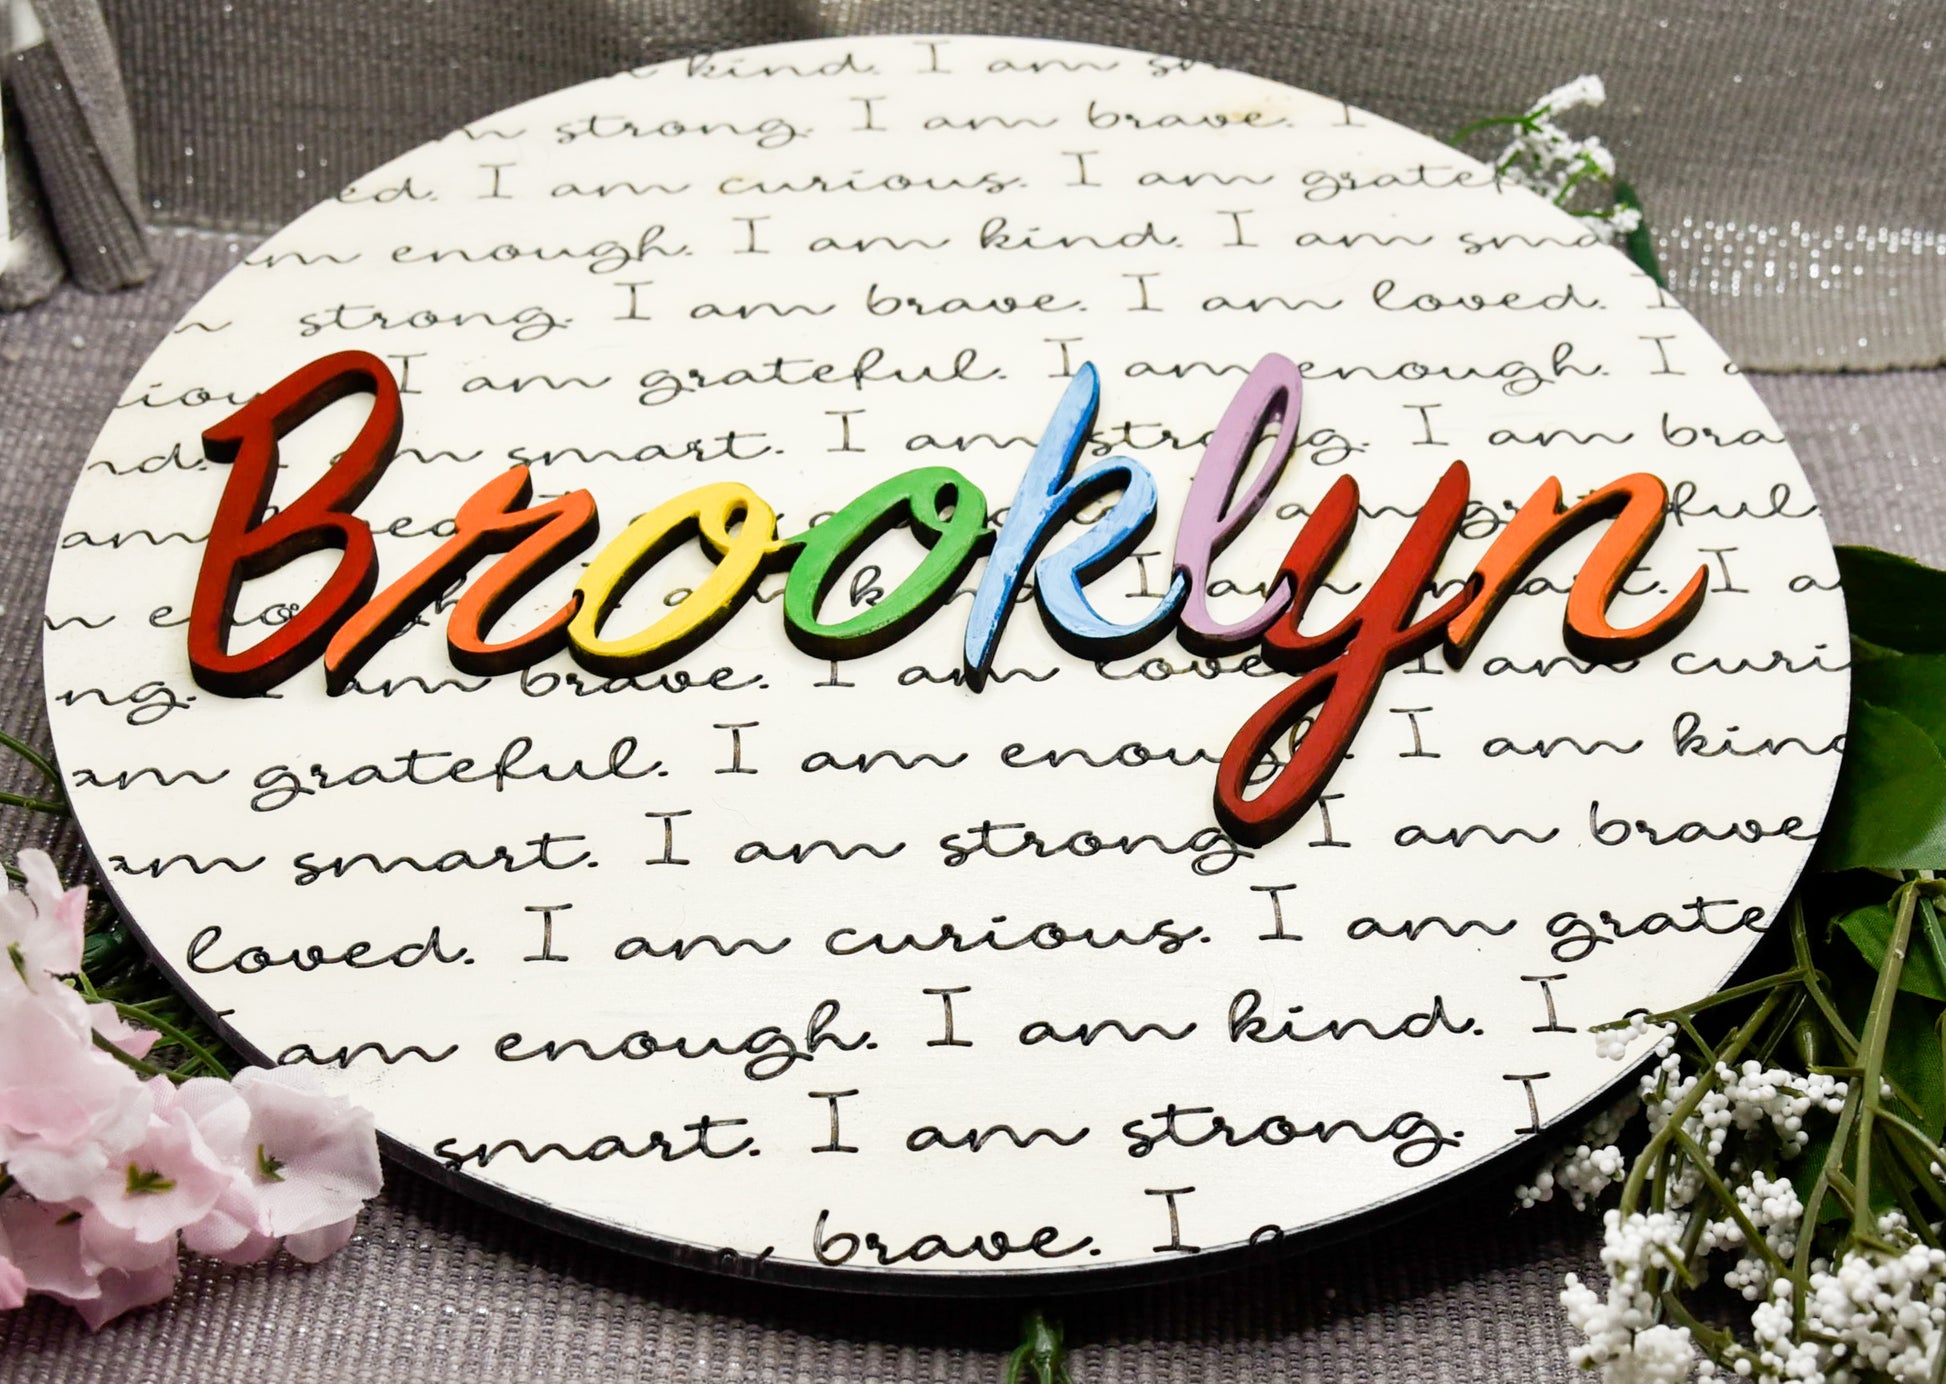 kind. I am
strong. I am brave. I
I am curious. I am
enough. I am kind. I am
strong. I am brave. I am loved. I
I am grateful. I am enough. I
am smart. I am strong. I am
Brooklyn
am
I am
I am brave. I am I am
am grateful. I am enough. I am
am smart. I am strong. I am brave
loved. I am curious. I am
am enough. I am kind. I
smart. I am strong. I
brave. I